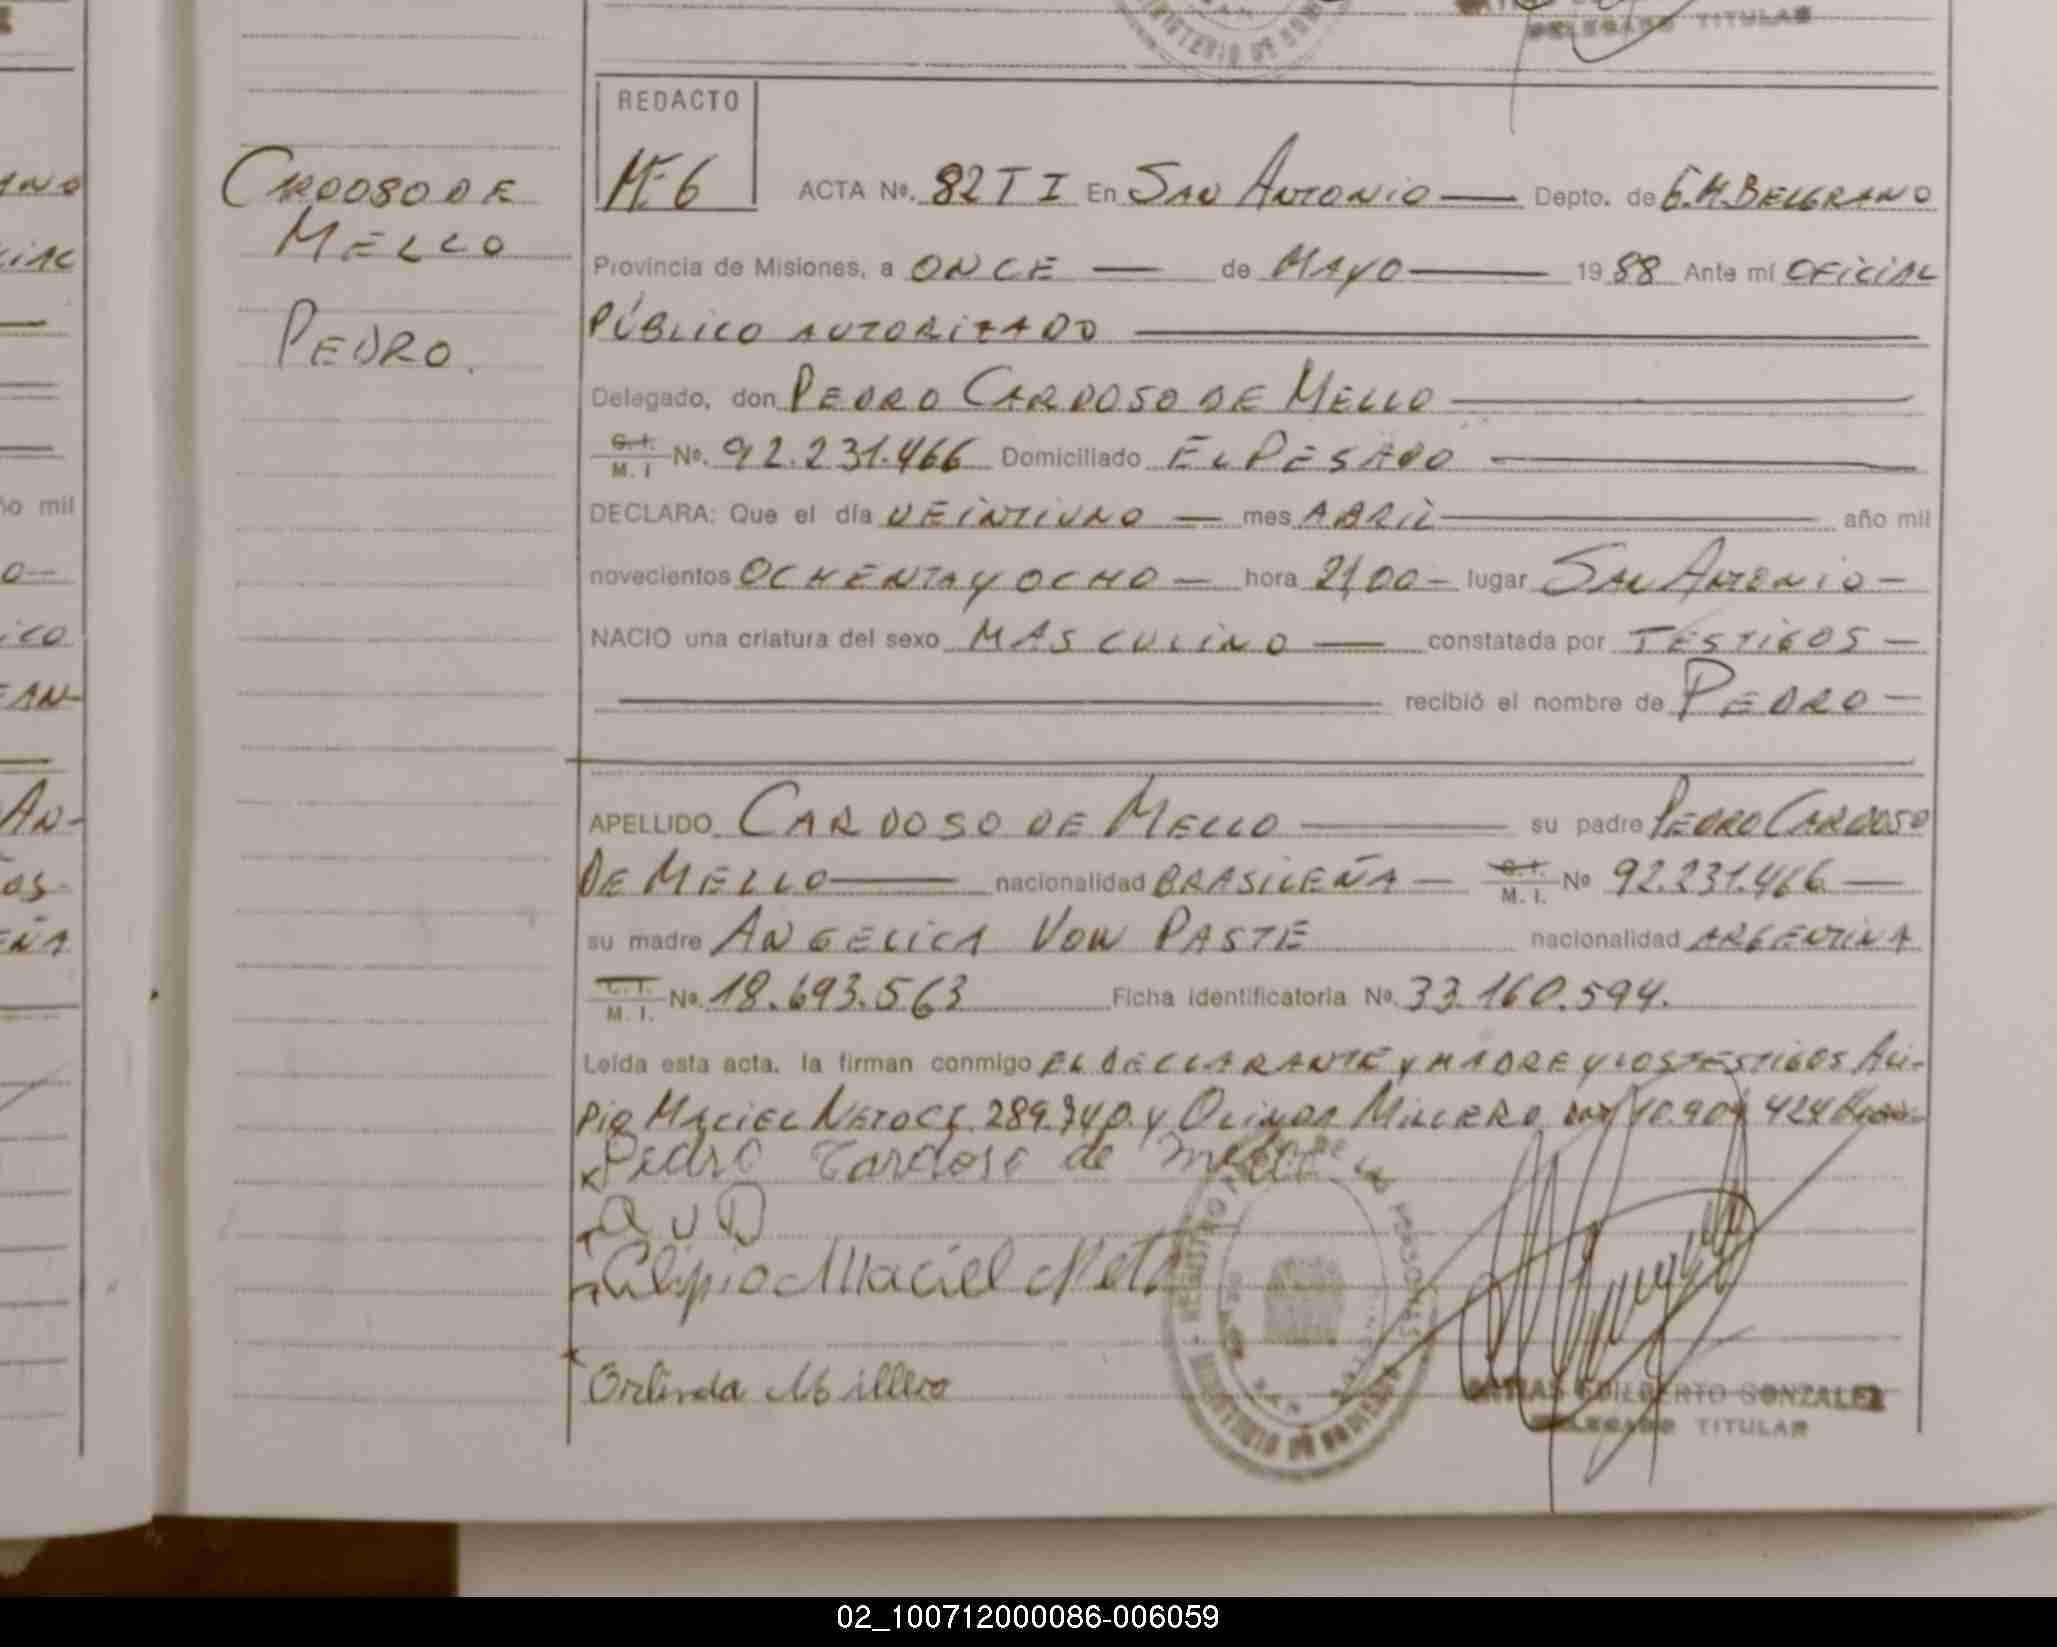 DELEGADO TITULAR
REDACTO
ACTA Nº. 82 T I En San Antonio — Depto. de G.M. Belgrano
Provincia de Misiones, a ONCE — de MAYO — 1988 Ante mí OFICIAL
PÚBLICO AUTORIZADO
CARDOSO DE
MELLO
PEDRO.
Delegado, don PEDRO CARDOSO DE MELLO
C.I. M.I Nº. 92.231.466 Domiciliado EL PESADO
DECLARA: Que el día VEINTIUNO — mes ABRIL — año mil
novecientos OCHENTA y OCHO — hora 21,00 — lugar SAN ANTONIO —
NACIO una criatura del sexo MASCULINO — constatada por TESTIGOS —
recibió el nombre de PEDRO —
APELLIDO CARDOSO DE MELLO — su padre PEDRO CARDOSO
DE MELLO — nacionalidad BRASILEÑA — C.I. M.I. Nº 92.231.466 —
su madre ANGELICA VON PASTE nacionalidad ARGENTINA
C.I. M.I. Nº. 18.693.563 Ficha identificatoria Nº. 33.160.594.
Leída esta acta, la firman conmigo EL DECLARANTE y MADRE y LOS TESTIGOS ALI-
PIO MACIEL NETO CI. 289.740. y MILLERO
Pedro Cardoso de Mello
Alipio Maciel Neto
Orlinda Millero
MATIAS EDILBERTO GONZALEZ
DELEGADO TITULAR
02_100712000086-006059